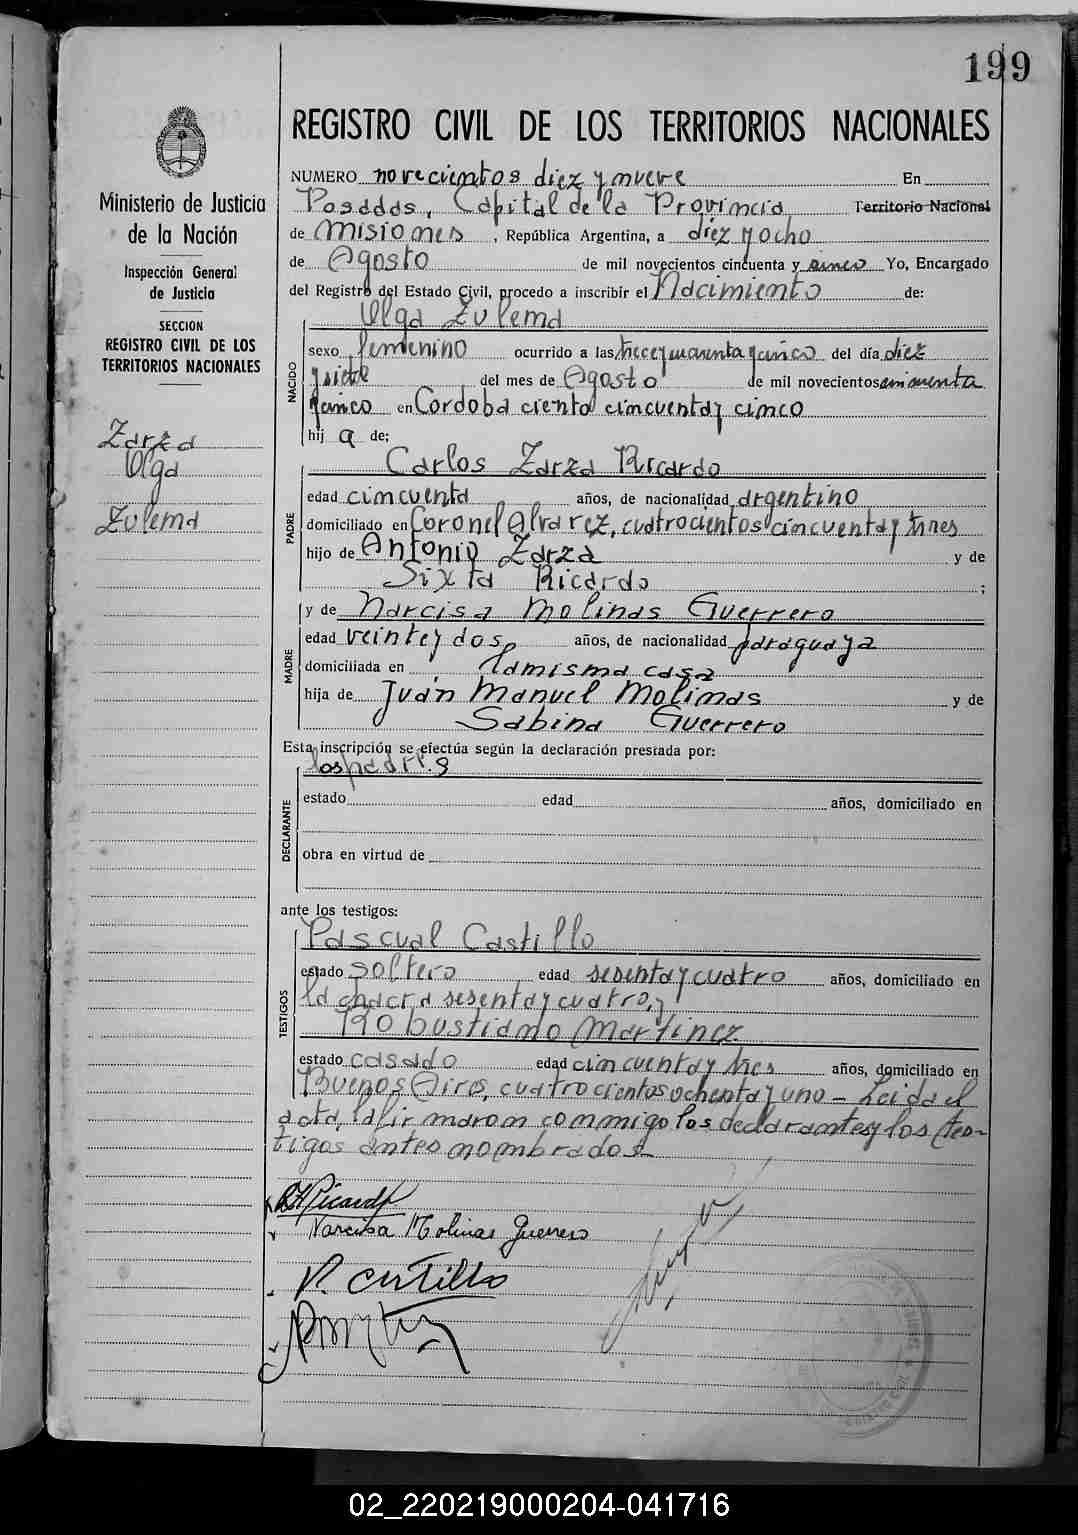 199
REGISTRO CIVIL DE LOS TERRITORIOS NACIONALES
Ministerio de Justicia
de la Nación
Inspección General
de Justicia
SECCION
REGISTRO CIVIL DE LOS
TERRITORIOS NACIONALES
Zarza
Olga
Zulema
NUMERO novecientos diez y nueve En
Posadas, Capital de la Provincia Territorio Nacional
de Misiones, República Argentina, a diez y ocho
de Agosto de mil novecientos cincuenta y cinco Yo, Encargado
del Registro del Estado Civil, procedo a inscribir el Nacimiento de:
Olga Zulema
NACIDO
sexo femenino ocurrido a las trece y cuarenta y cinco del día diez
y siete del mes de Agosto de mil novecientos cincuenta
y cinco en Cordoba ciento cincuenta y cinco
hij a de:
Carlos Zarza Ricardo
PADRE
edad cincuenta años, de nacionalidad argentino
domiciliado en Coronel Alvarez, cuatrocientos cincuenta y tres
hijo de Antonio Zarza y de
Sixta Ricardo ;
y de Narcisa Molinas Guerrero
MADRE
edad veinte y dos años, de nacionalidad paraguaya
domiciliada en la misma casa
hija de Juan Manuel Molinas y de
Sabina Guerrero
Esta inscripción se efectúa según la declaración prestada por:
los padres
DECLARANTE
estado edad años, domiciliado en
obra en virtud de
ante los testigos:
Pascual Castillo
TESTIGOS
estado soltero edad sesenta y cuatro años, domiciliado en
la chacra sesenta y cuatro, y
Robustiano Martinez
estado casado edad cincuenta y tres años, domiciliado en
Buenos Aires, cuatrocientos ochenta y uno - Leida el
acta, la firmaron conmigo los declarantes y los tes-
tigos antes nombrados
Ricardo
Narcisa Molinas Guerrero
P. Castillo
02_220219000204-041716